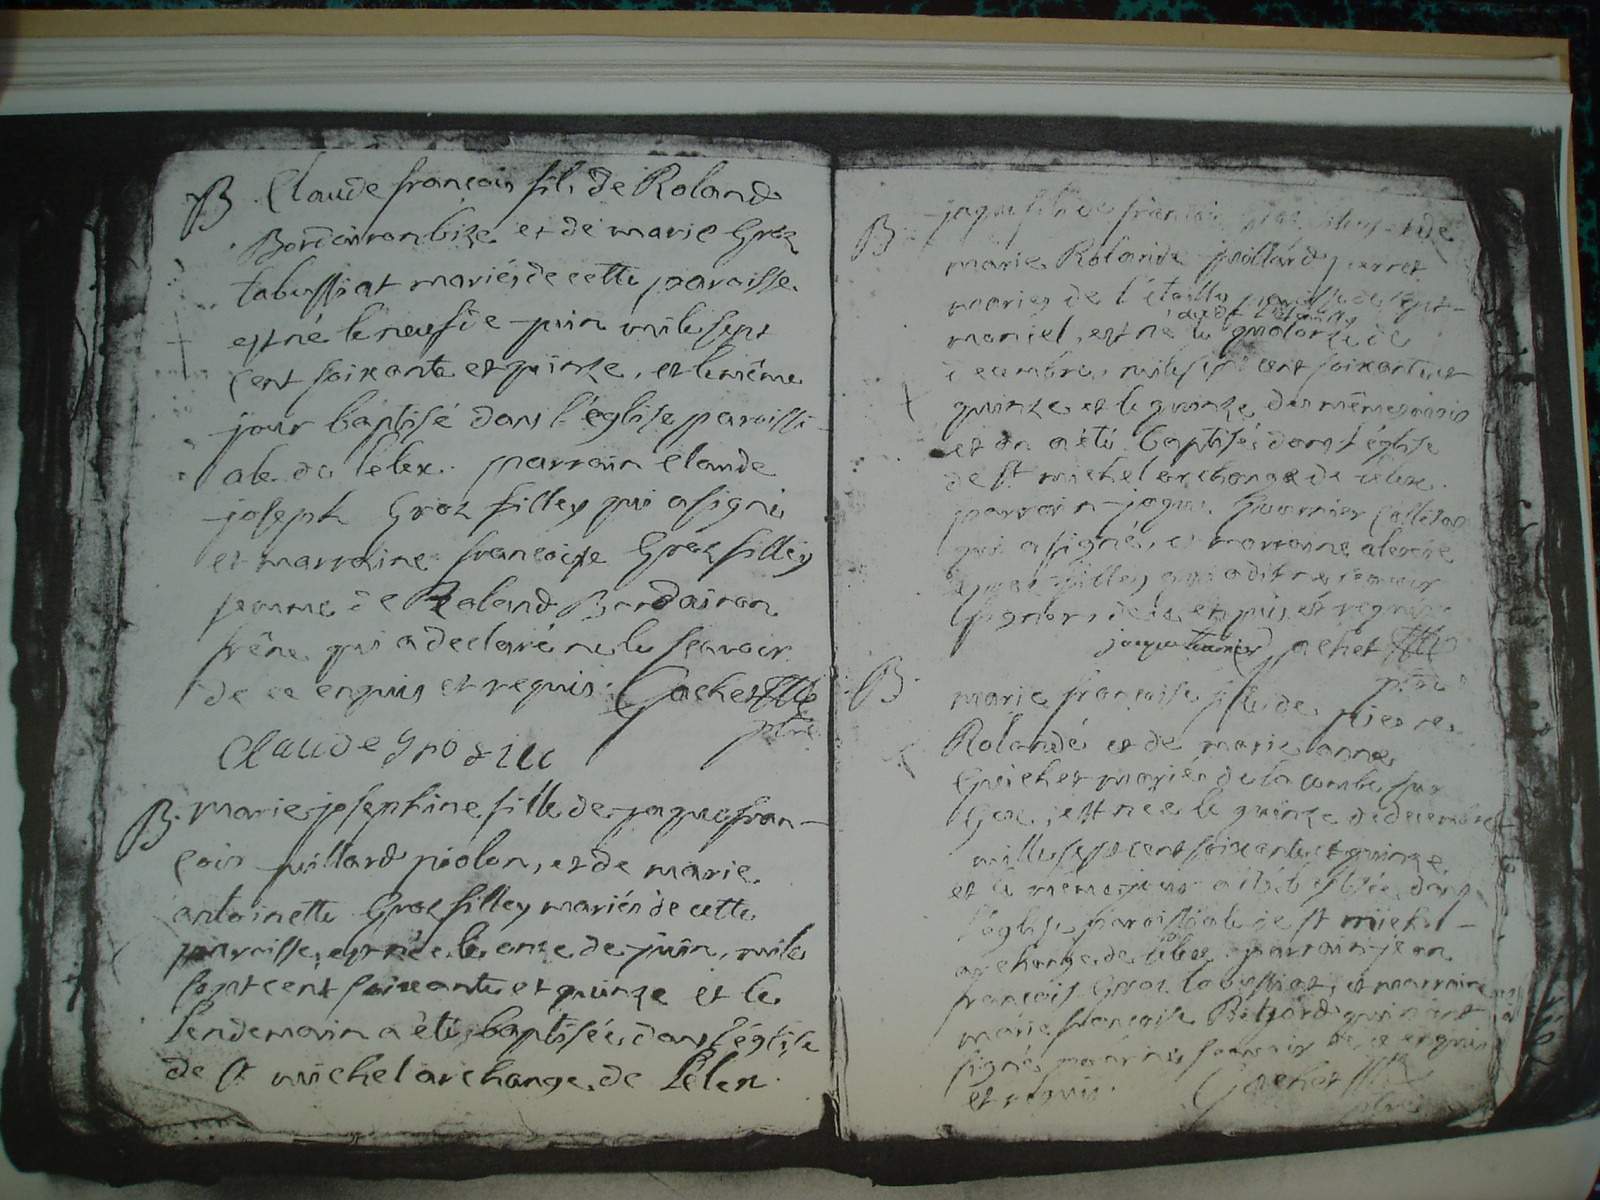 B. Claude françois fils de Roland
Bordairon bize et de marie Groz
tabussiat mariés de cette paroisse
est né le neuf de juin mile sept
cent soixante et quinze, et le même
jour baptisé dans l'église paroissi-
ale de lélex. parrain claude
joseph Groz filley qui a signé
et marraine françoise Groz filley
femme de Roland Bordairon
frêne qui a declaré ne le sçavoir
de ce enquis et requis. Gachet
ptre
Claude groz
B. marie josephine fille de jaque fran-
çois juillard piolon, et de marie
antoinette Groz filley mariés de cette
paroisse, est née le onze de juin, mile
sept cent soixante et quinze et le
lendemain a été baptisée dans l'église
de St michel archange de Lélex.
B. jaque fils de françois et de
marie Rolande juillard
mariés de
est né le quatorze de
decembre, mile sept cent soixante et
quinze et le quinze des même mois
et an a été baptisé dans l'église
de St michel archange de lélex.
parrain jaque
qui a signé, et marraine
Groz filley qui a dit ne sçavoir
signer, de ce enquis et requis
Gachet
ptre
B. marie françoise fille de pierre
Rolande et de marie anne
mariés de la combe sur
Gex, est née le quinze de decembre
mille sept cent soixante et quinze
et le meme jour a été baptisée dans
l'église paroissiale de St michel
archange de lélex parrain jean
françois Groz tabussiat, et marraine
marie françoise qui n'ont
signé pour ne sçavoir de ce enquis
et requis. Gachet
ptre